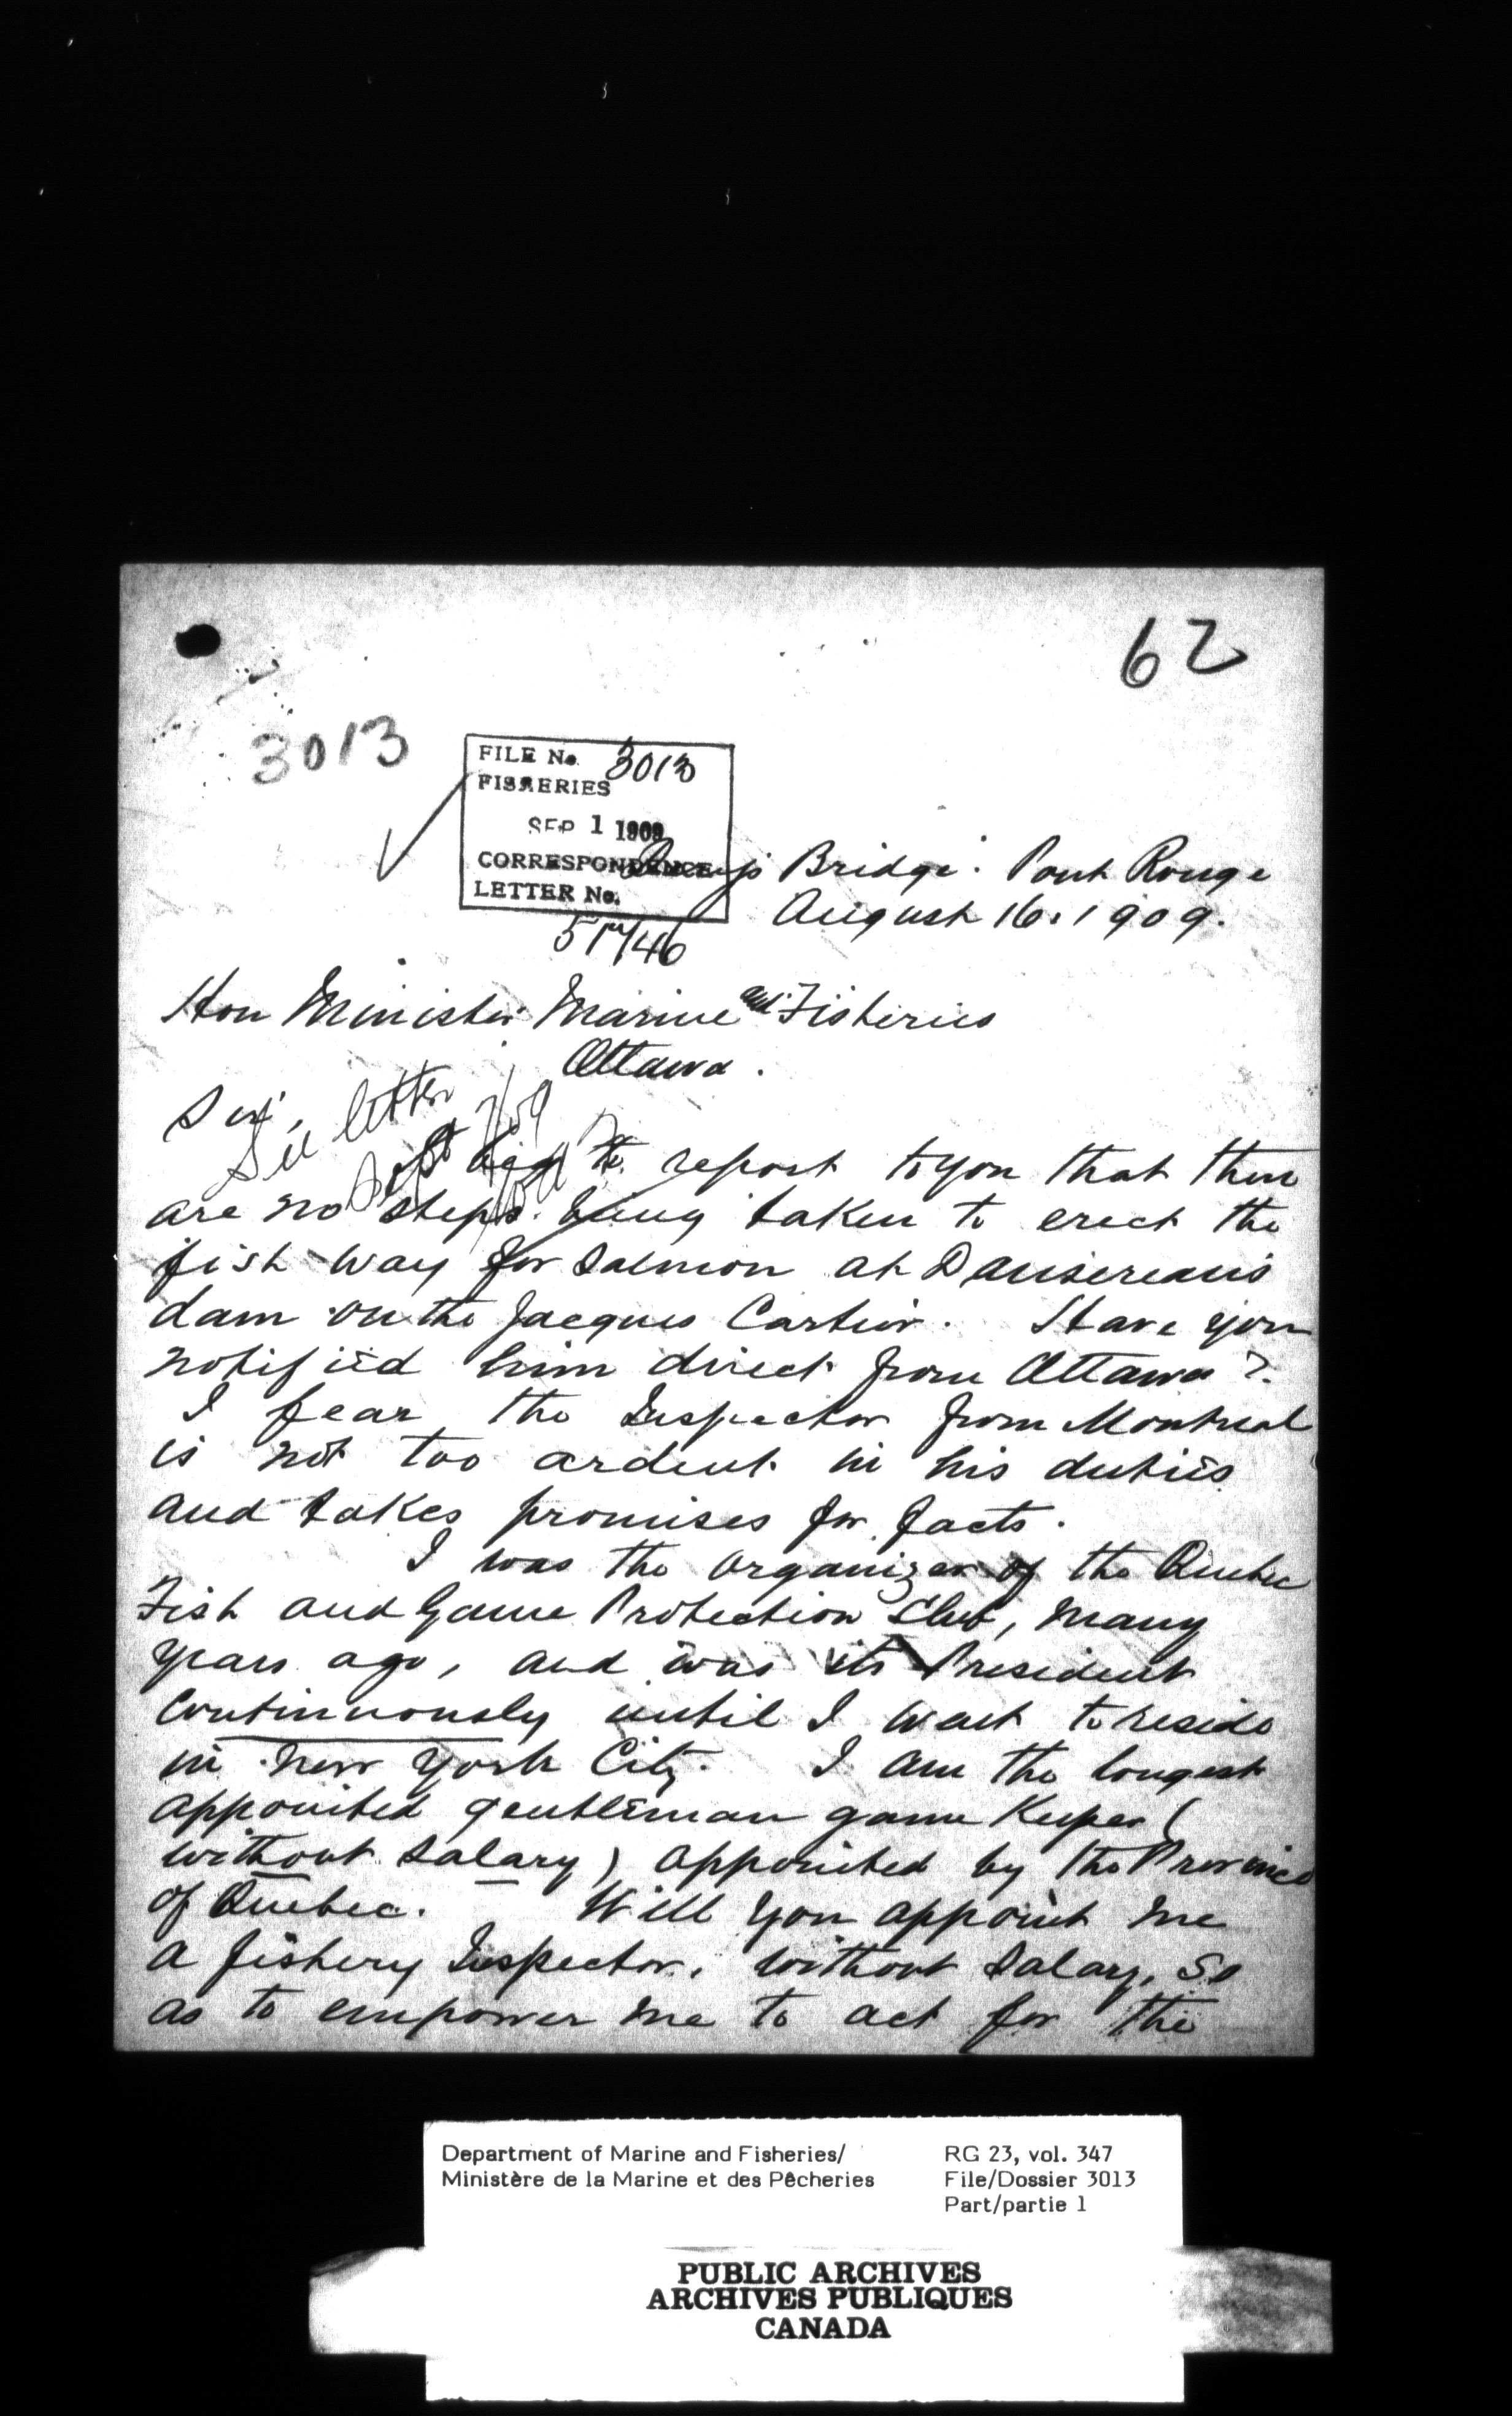 62
3013
FILE No. 3013
FISHERIES
SEP 1 1909
CORRESPONDENCE
LETTER No.
Bridge. Pont Rouge
August 16. 1909.
Hon Minister Marine and Fisheries
Ottawa.
Sir,
See letter
Sept
I beg to report to you that there
are no steps being taken to erect the
fish way for salmon at Dansereau's
dam on the Jacques Cartier. Have you
notified him direct from Ottawa?
I fear the Inspector from Montreal
is not too ardent in his duties
and takes promises for facts.
I was the organizer of the Quebec
Fish and Game Protection Club, many
years ago, and was its President
continuously until I went to reside
in New York City. I am the longest
appointed gentleman game keeper (
without salary) appointed by the Province
of Quebec. Will you appoint me
a fishery Inspector, without salary, so
as to empower me to act for the
Department of Marine and Fisheries/
Ministère de la Marine et des Pêcheries
RG 23, vol. 347
File/Dossier 3013
Part/partie 1
PUBLIC ARCHIVES
ARCHIVES PUBLIQUES
CANADA